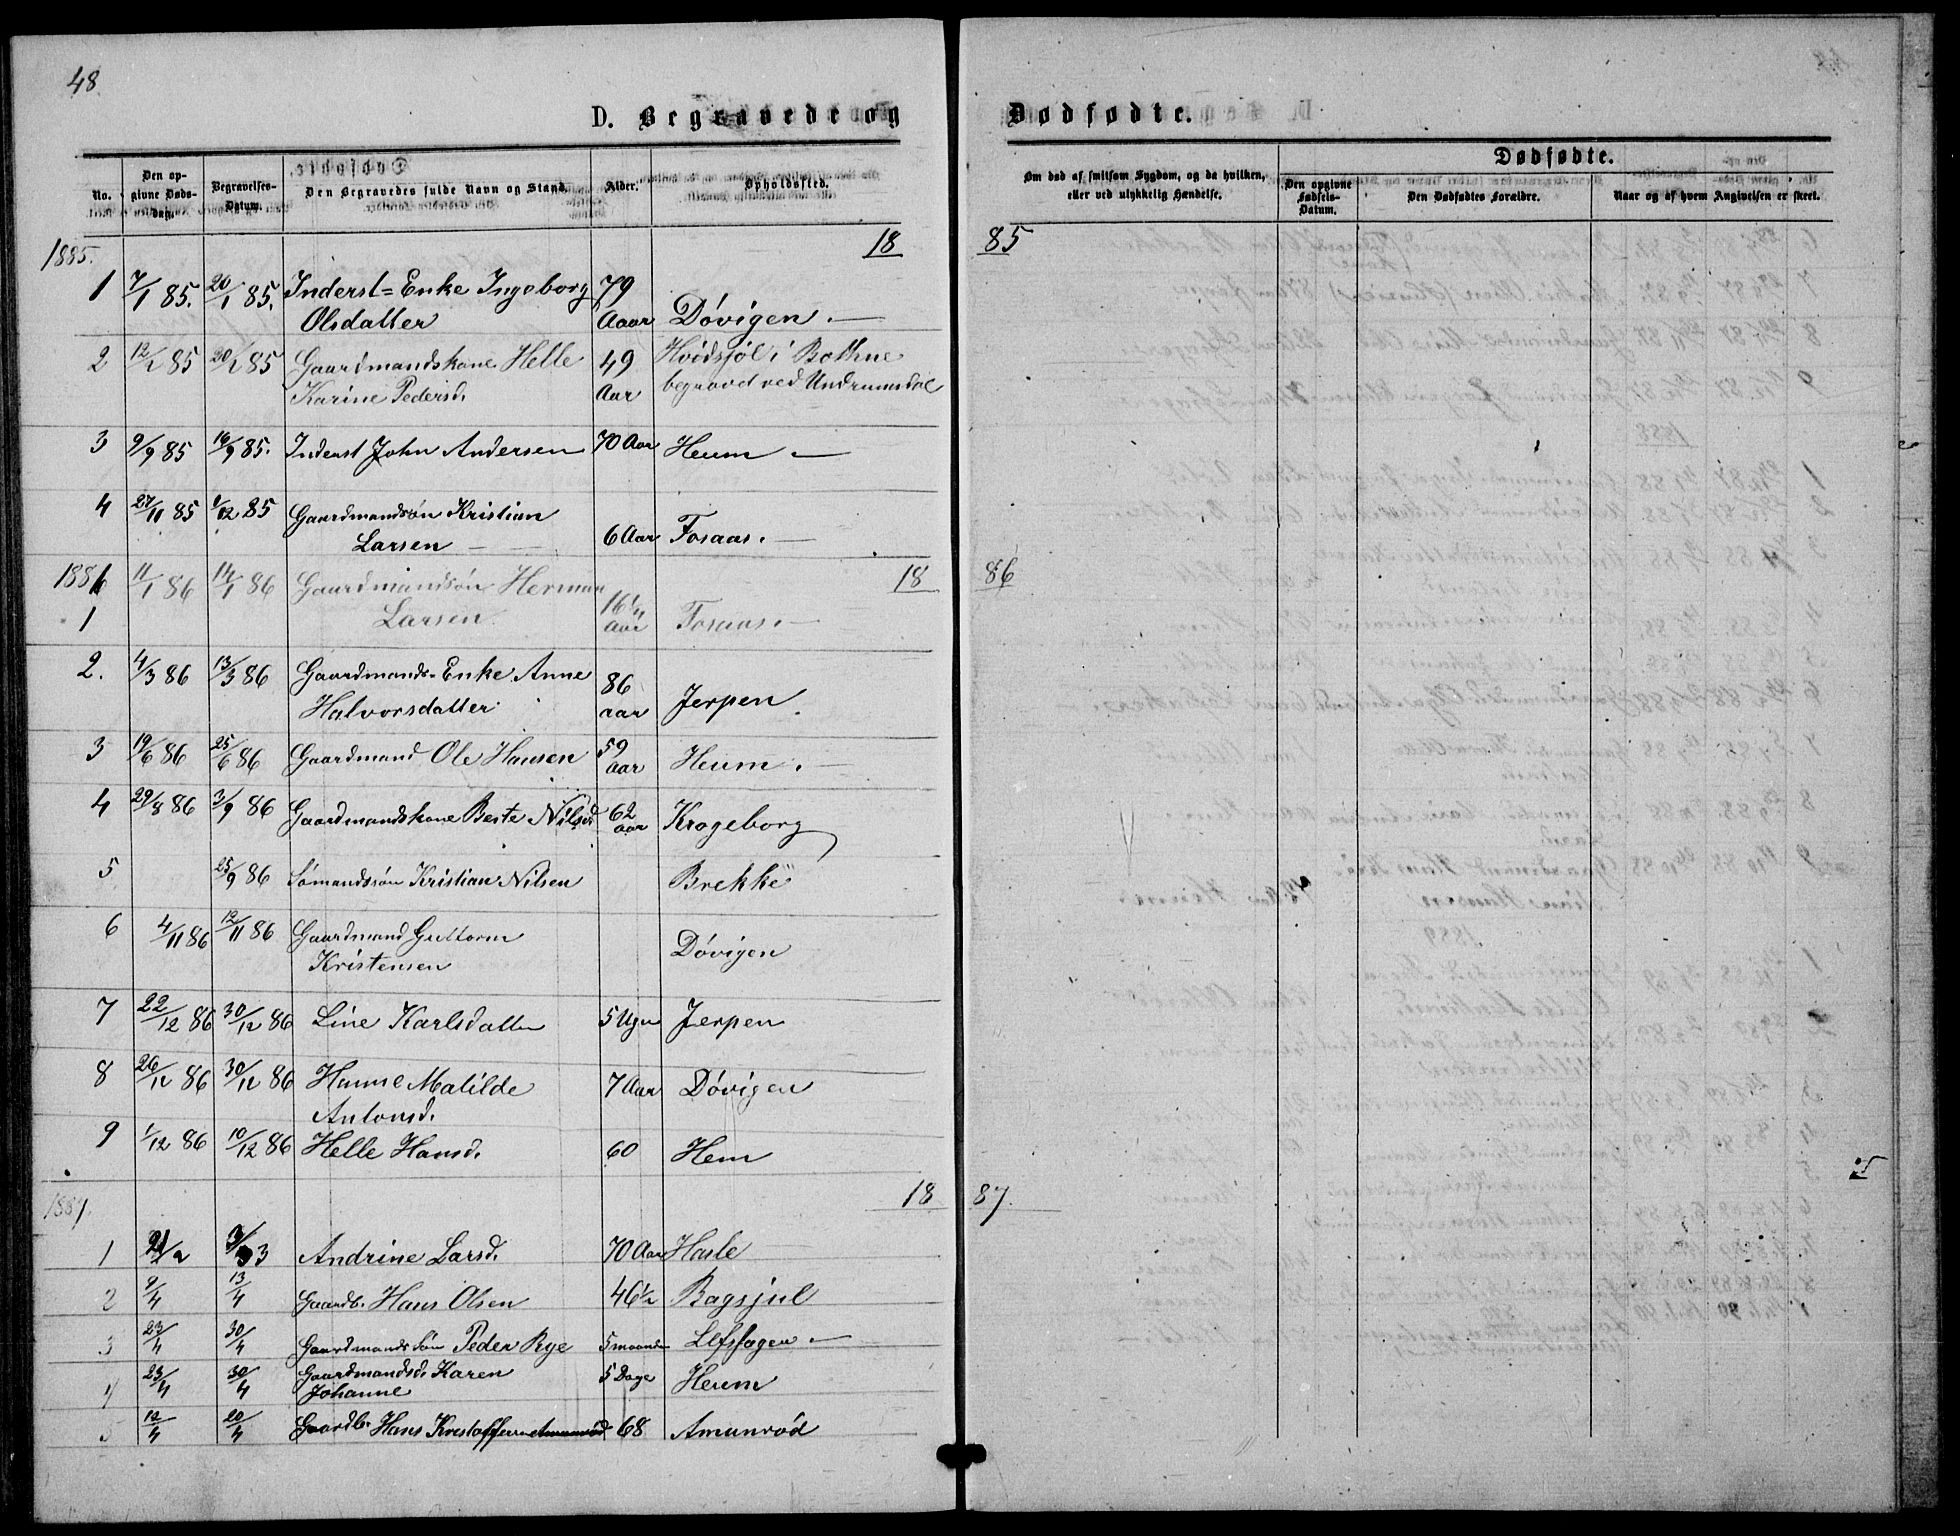 48
D. Begravede og Dødfødte.
No. Den opgivne Dødsdag. Begravelses-Datum. Den Begravedes fulde Navn og Stand. Alder. Opholdssted.
Om død af smitsom Sygdom, og da hvilken, eller ved ulykkelig Hændelse. Dødfødte. Den opgivne Fødsels-Datum. Den Dødfødtes Forældre. Naar og af hvem Angivelsen er skeet.
1885. 18 85
1 7/1 85. 20/1 85. Inderst=Enke Ingeborg 79
Olsdatter Aaar Dövigen.
2 12/2 85 20/2 85 Gaardmandskone Helle 49 i Bothne
Karine Pedersd. Aar begravet ved Undrumsdal
3 9/9 85 16/9 85. Inderst John Andersen 70 Aar Heum
4 27/11 85 1/12 85 Gaardmandsön Kristian
Larsen 6 Aar Fosaas.
1886 11/1 86 14/1 86 Gaardmandsön Herman 18 86
1 Larsen 16 1/4 Aar Fosaas.
2. 4/3 86 13/3 86 Gaardmands=Enke Anne 86
Halvorsdatter aar Jerpen.
3 19/6 86 25/6 86 Gaardmand Ole Hansen 59 aar Heum.
4 29/8 86 3/9 86 Gaardmandskone Berte Nilsd. 62 aar Krogeborg
5 25/9 86 Sömandssön Kristian Nilsen Brekke
6 4/11 86 12/11 86 Gaardmand Guttorm
Kristensen Dövigen
7 22/12 86 30/12 86 Line Karlsdatter 5 Uger Jerpen
8 26/12 86 30/12 86 Hanne Matilde 7 Aar Dövigen
Antonsd.
9 1/12 86 10/12 86 Helle Hansd. 60 Hem
1887. 18 87.
1 3/3 Andrine Larsd. 70 Aar Hasle
2 9/4 13/4 Gaardb. Hans Olsen 46 1/2 Bagsjul
3 23/4 30/4 Gaardmandssön Peder Rye 5 maaneder
4 23/4 30/4 Gaardmandsd. Karen 5 Dage Heum
Johanne
5 12/4 20/4 Gaardb. Hans 68 Amunröd